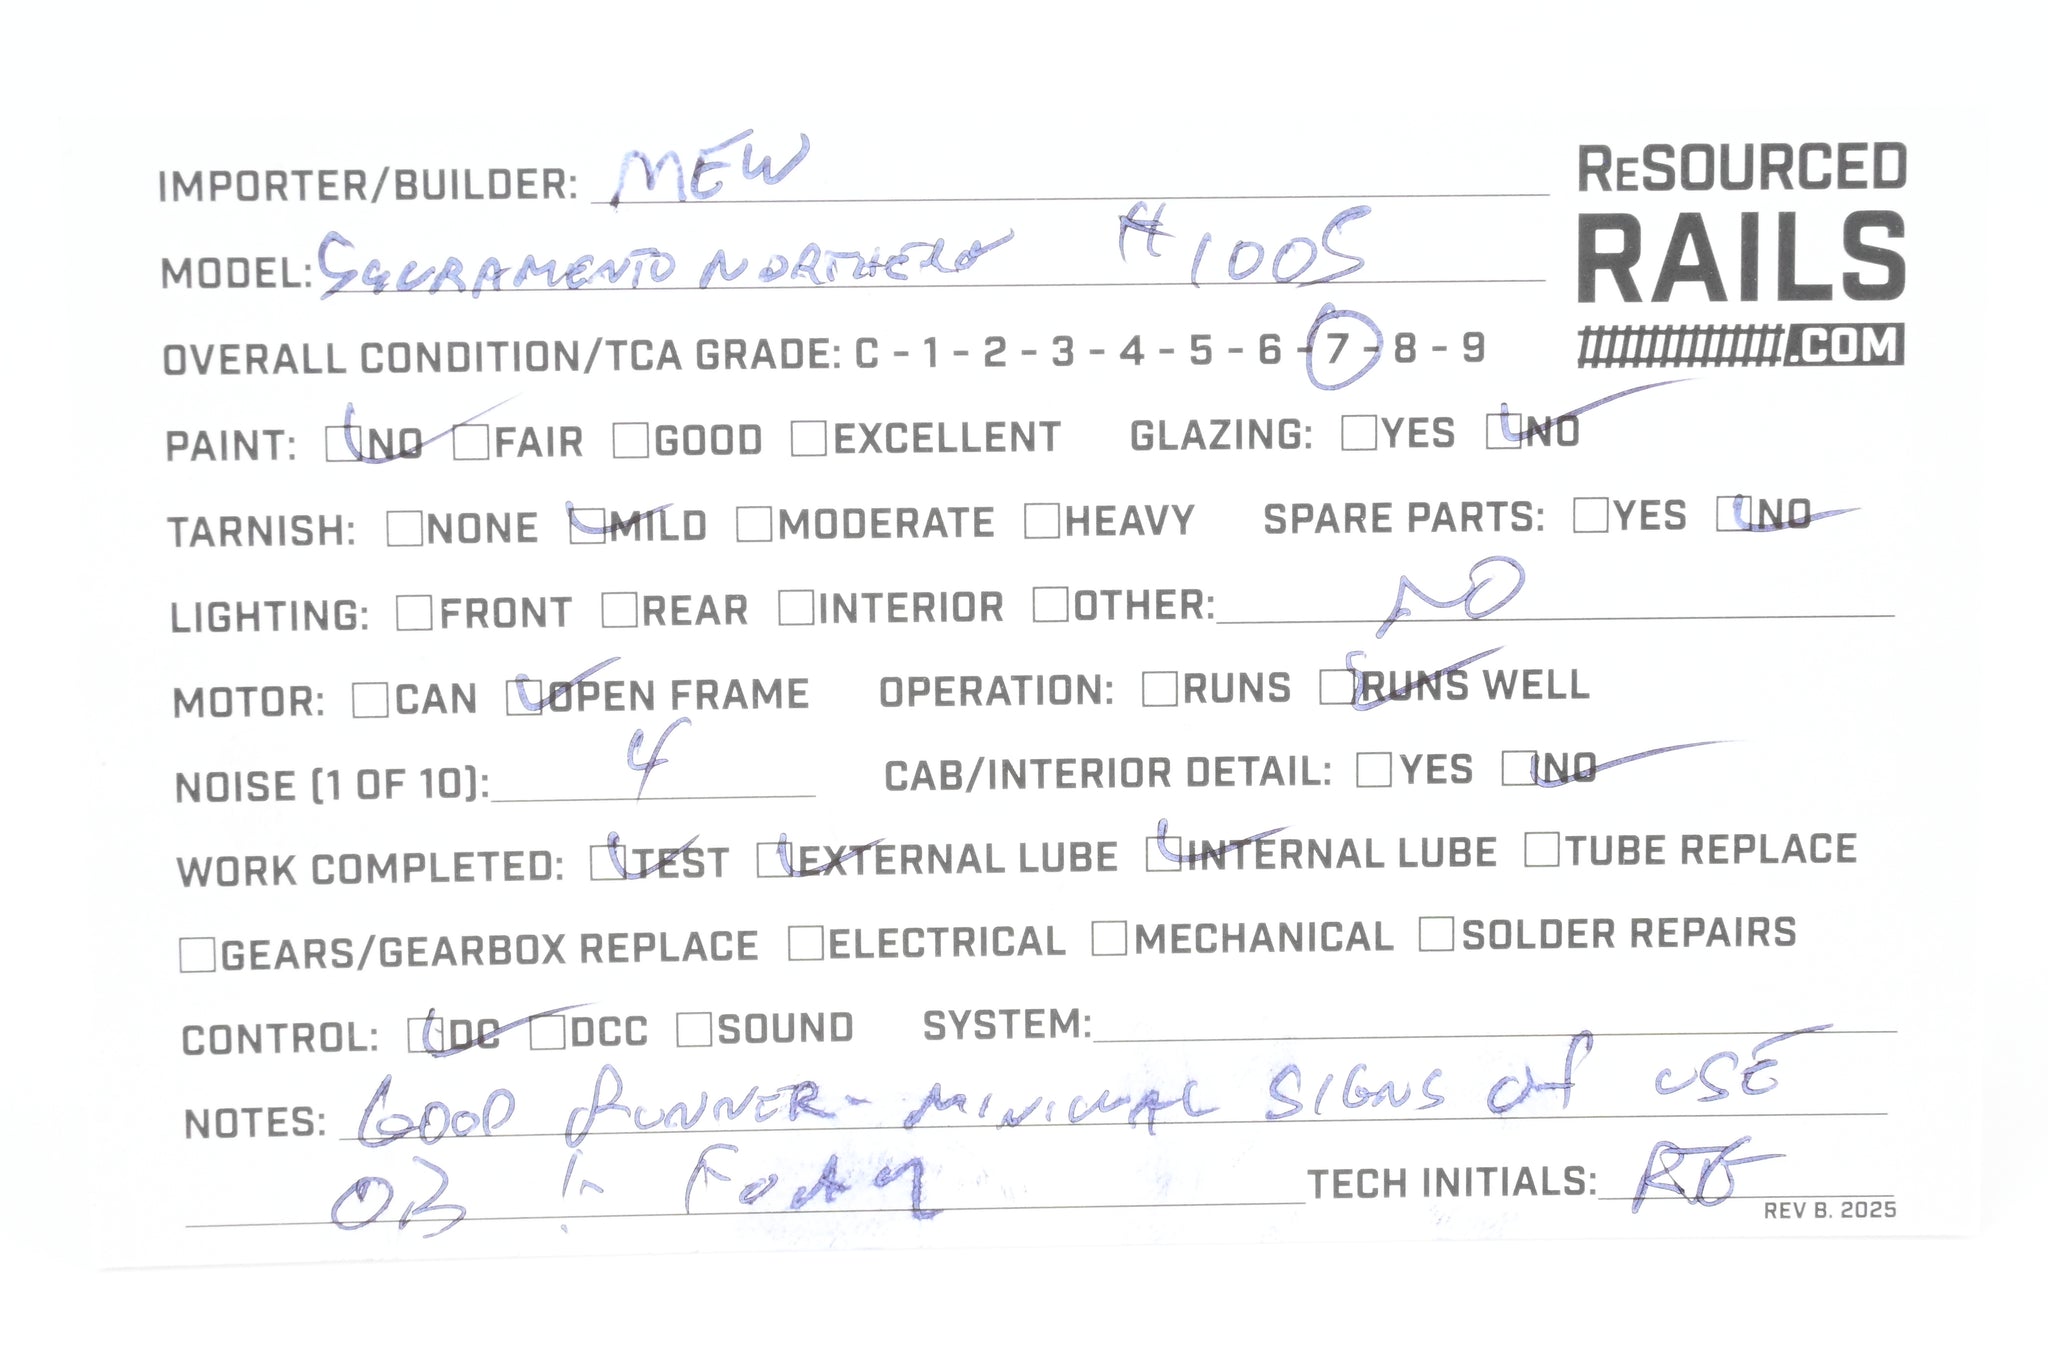 IMPORTER/BUILDER: MEW
RESOURCED
RAILS
.COM
MODEL: SACRAMENTO NORTHERN #1005
OVERALL CONDITION/TCA GRADE: C - 1 - 2 - 3 - 4 - 5 - 6 - 7 - 8 - 9
PAINT: ☑NO ☐FAIR ☐GOOD ☐EXCELLENT GLAZING: ☐YES ☑NO
TARNISH: ☐NONE ☑MILD ☐MODERATE ☐HEAVY SPARE PARTS: ☐YES ☑NO
LIGHTING: ☐FRONT ☐REAR ☐INTERIOR ☐OTHER: NO
MOTOR: ☐CAN ☑OPEN FRAME OPERATION: ☐RUNS ☑RUNS WELL
NOISE (1 OF 10): 4 CAB/INTERIOR DETAIL: ☐YES ☑NO
WORK COMPLETED: ☑TEST ☑EXTERNAL LUBE ☑INTERNAL LUBE ☐TUBE REPLACE
☐GEARS/GEARBOX REPLACE ☐ELECTRICAL ☐MECHANICAL ☐SOLDER REPAIRS
CONTROL: ☑DC ☐DCC ☐SOUND SYSTEM:
NOTES: GOOD RUNNER - MINIMAL SIGNS OF USE
OB in FOAM TECH INITIALS:
REV B. 2025